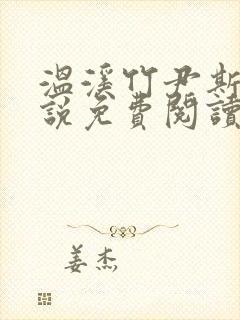 溫溪竹尹斯
說免費閱讀
姜杰